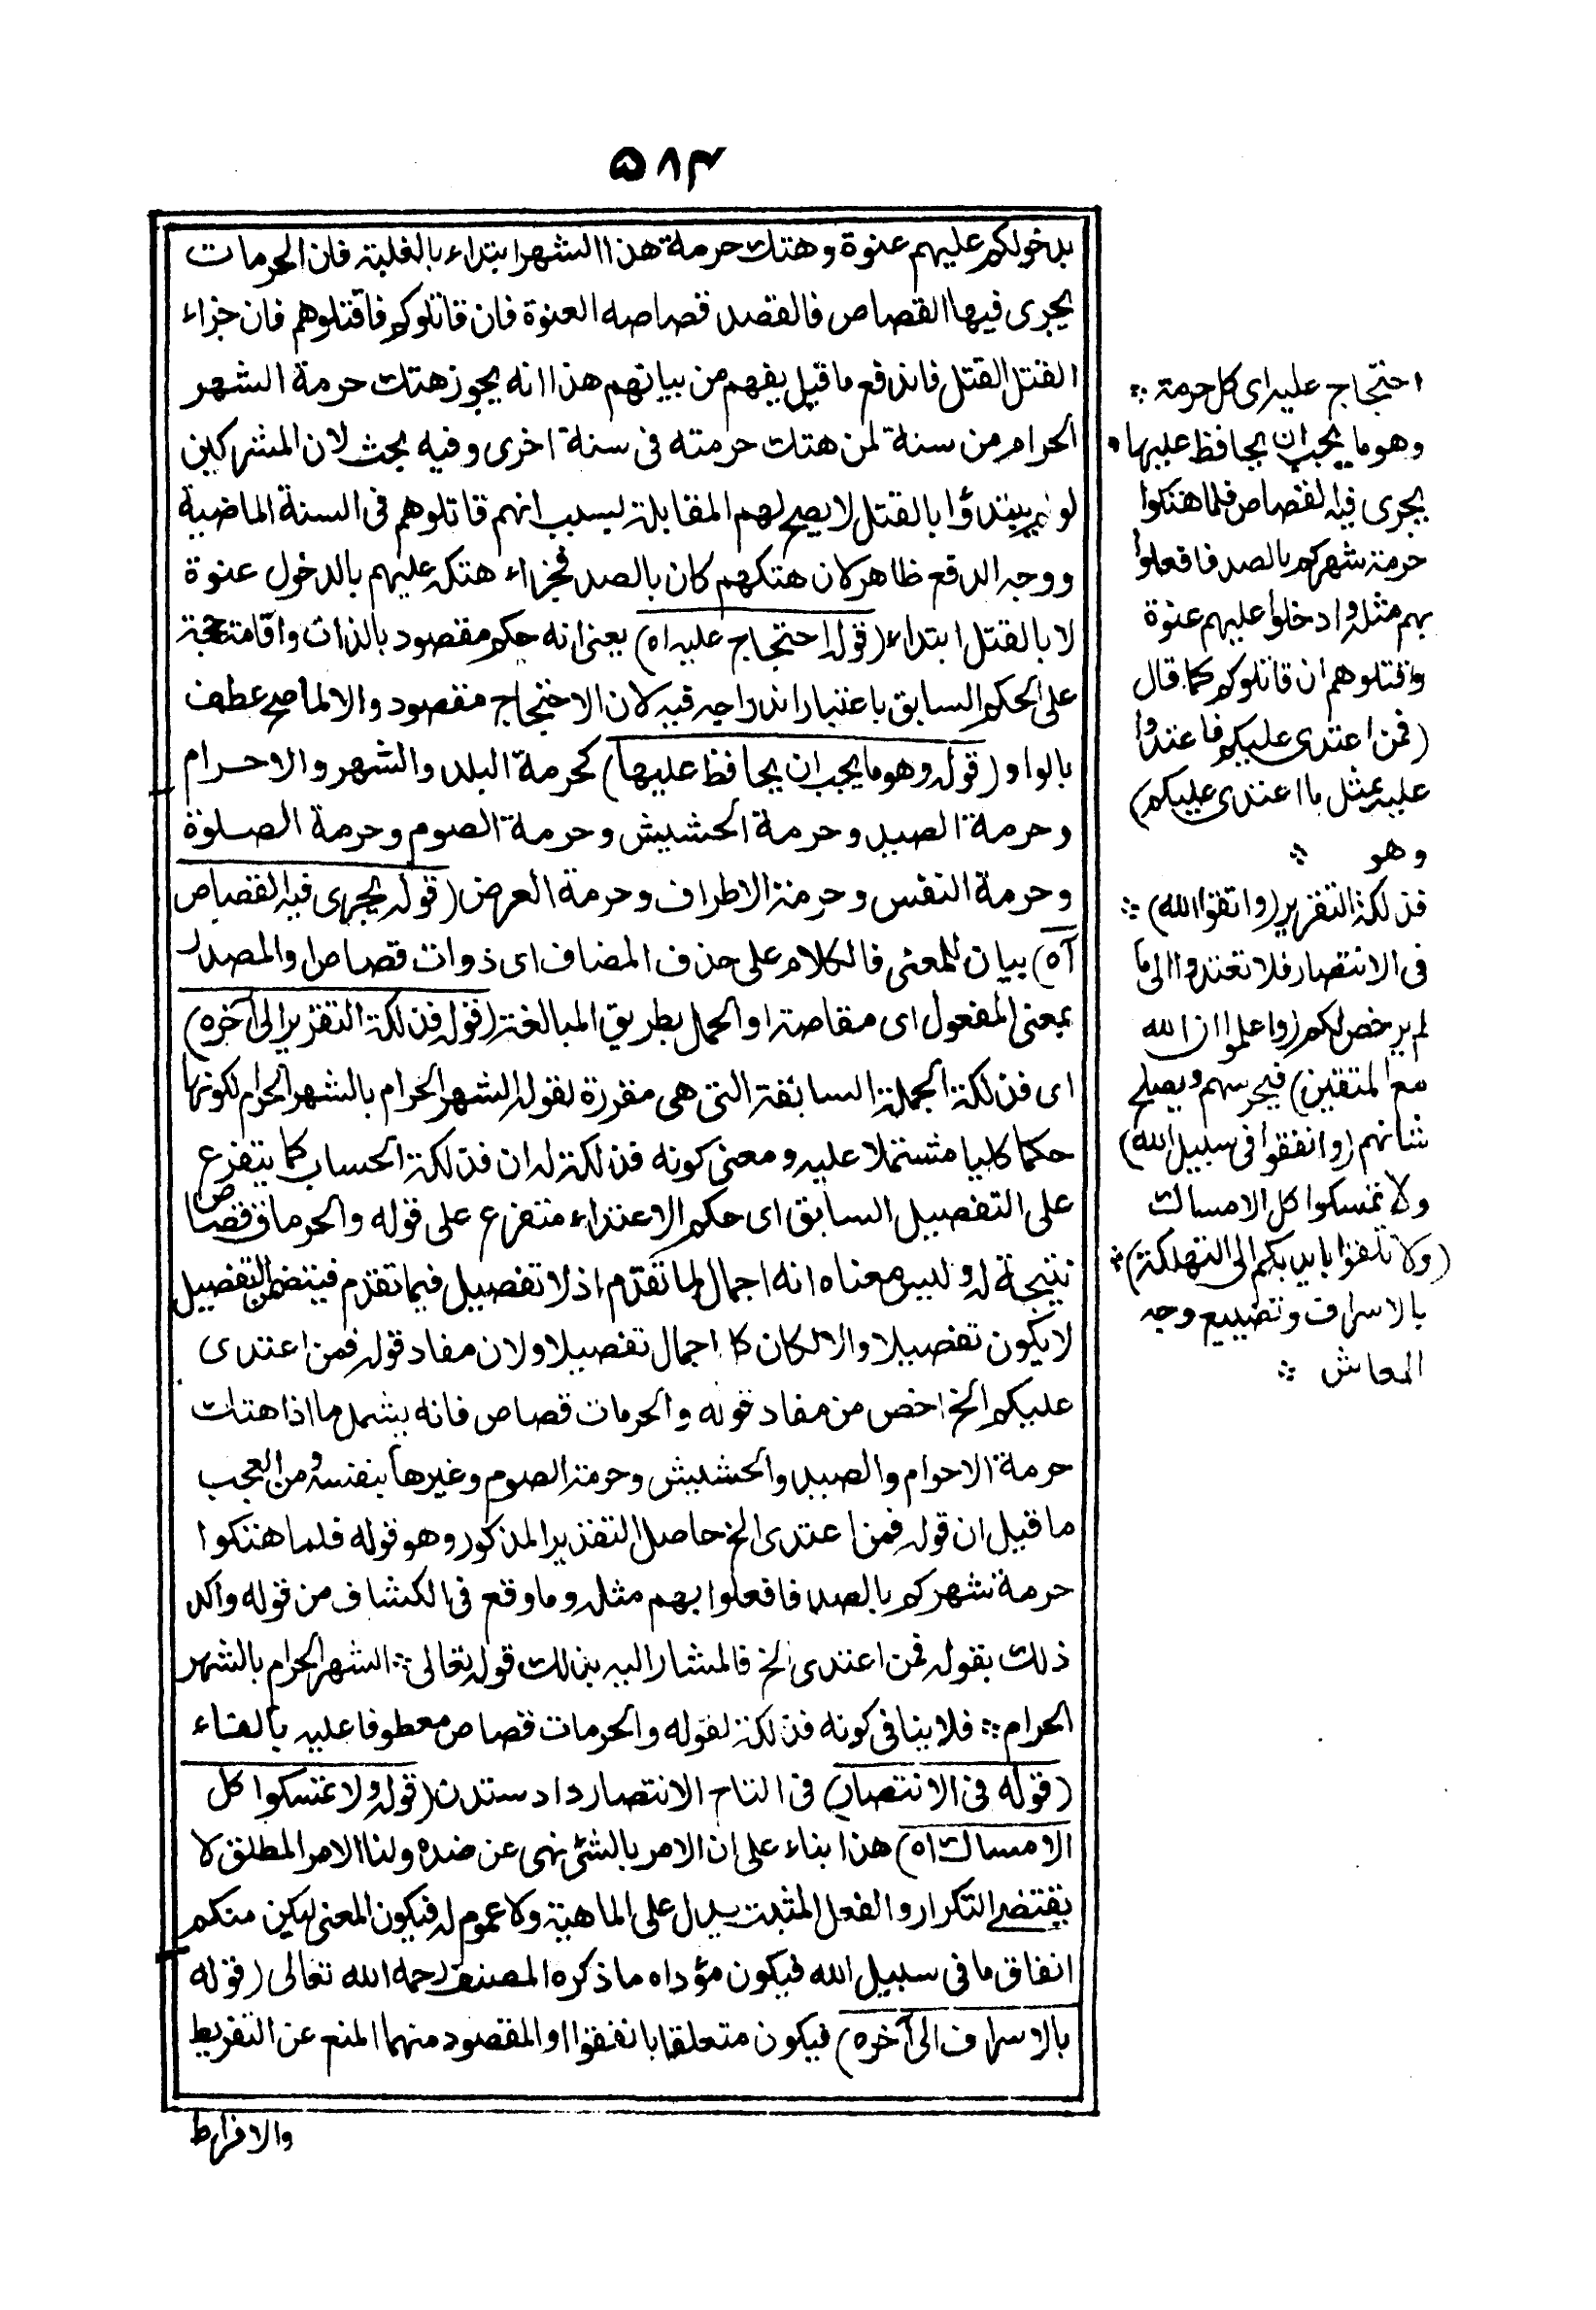 ٥٨٤
بدخولكم عليهم عنوة وهتك حرمة هذا الشهر ابتداء بالغلبة فان الحرمات
يجرى فيها القصاص فالقصد قصاصه العنوة فان قاتلوكم فاقتلوهم فان جزاء
القتل القتل فاندفع ما قيل يفهم من بيانهم هذا انه يجوز هتك حرمة الشهر
الحرام من سنة لمن هتك حرمته فى سنة اخرى وفيه بحث لان المشركين
لو لم يبتدؤا بالقتل لا يصح لهم المقابلة بسبب انهم قاتلوهم فى السنة الماضية
ووجه الدفع ظاهر لان هتكهم كان بالصد فجزاء هتكه عليهم بالدخول عنوة
لا بالقتل ابتداء (قوله احتجاج عليه اه) يعنى انه حكم مقصود بالذات واقامة حجة
على الحكم السابق باعتبار اندراجه فيه لان الاحتجاج مقصود والا لما صح عطف
بالواو (قوله وهو ما يجب ان يحافظ عليها) كحرمة البلد والشهر والاحرام
وحرمة الصيد وحرمة الحشيش وحرمة الصوم وحرمة الصلوة
وحرمة النفس وحرمة الاطراف وحرمة العرض (قوله يجرى فيه القصاص
آه) بيان للمعنى فالكلام على حذف المضاف اى ذوات قصاص او المصدر
بمعنى المفعول اى مقاصة او الحمل بطريق المبالغة (قوله فذلكة التقرير الى آخره)
اى فذلكة الجملة السابقة التى هى مقررة لقوله الشهر الحرام بالشهر الحرام لكونها
حكما كليا مشتملا عليه ومعنى كونه فذلكة له ان فذلكة الحساب كما يتفرع
على التفصيل السابق اى حكم الاعتداء متفرع على قوله والحرمات قصاص
نتيجة له وليس معناه انه اجمال لما تقدم اذ لا تفصيل فيما تقدم فيتضمن التفصيل
لا يكون تفصيلا والا لكان كل اجمال تفصيلا ولان مفاد قوله فمن اعتدى
عليكم الخ اخص من مفاد قوله والحرمات قصاص فانه يشمل ما اذا هتك
حرمة الاحرام والصيد والحشيش وحرمة الصوم وغيرها بنفسه ومن العجب
ما قيل ان قوله فمن اعتدى الخ حاصل التقدير المذكور وهو قوله فلما هتكوا
حرمة شهركم بالصد فافعلوا بهم مثله وما وقع فى الكشاف من قوله واكد
ذلك بقوله فمن اعتدى الخ فالمشار اليه بذلك قوله تعالى ؞ الشهر الحرام بالشهر
الحرام ؞ فلا ينافى كونه فذلكة لقوله والحرمات قصاص معطوفا عليه بالفاء
(قوله فى الانتصار) فى التاج الانتصار داد ستدن (قوله ولا تمسكوا كل
الامساك اه) هذا بناء على ان الامر بالشئ نهى عن ضده ولنا الامر المطلق لا
يقتضى التكرار والفعل المثبت يدل على الماهية ولا عموم له فيكون المعنى ليكن منكم
انفاق ما فى سبيل الله فيكون مؤداه ما ذكره المصنف رحمه الله تعالى (قوله
بالاسراف الى آخره) فيكون متعلقا بانفقوا او المقصود منهما المنع عن التفريط
والافراط
احتجاج عليه اى كل حرمة ؞
وهو ما يجب ان يحافظ عليها ؞
يجرى فيه القصاص فلما هتكوا
حرمة شهركم بالصد فافعلوا
بهم مثله وادخلوا عليهم عنوة
واقتلوهم ان قاتلوكم كما قال
(فمن اعتدى عليكم فاعتدوا
عليه بمثل ما اعتدى عليكم)
وهو ؞
فذلكة التقرير (واتقوا الله) ؞
فى الانتصار فلا تعتدوا الى ما
لم يرخص لكم (واعلموا ان الله
مع المتقين) فيحرسهم ويصلح
شانهم (وانفقوا فى سبيل الله)
ولا تمسكوا كل الامساك
(ولا تلقوا بايديكم الى التهلكة) ؞
بالاسراف وتضييع وجه
المعاش ؞